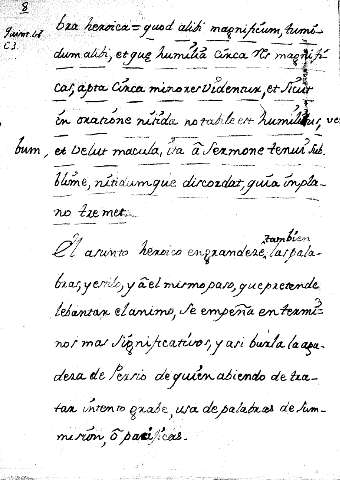 8
bra heroica = quod alibi magnificum, tumi-
dum alibi, et quę humilia circa res magnifi-
cas, apta circa minores videntur, et sicut
in oratione nitida notabile est humilius, ver
bum, et velut macula, ita â sermone tenui sub-
blime, nitidumque discordat, quia inpla-
no tremet.
El asunto heroico engrandeze, tambien las pala-
bras, y estilo, y â el mismo paso, que pretende
lebantar el animo, se empeña en termi-
nos mas significativos, y asi burla la agu-
deza de Persio de quien abiendo de tra-
tar intento grabe, usa de palabras de sum-
mision, ô pacificas.